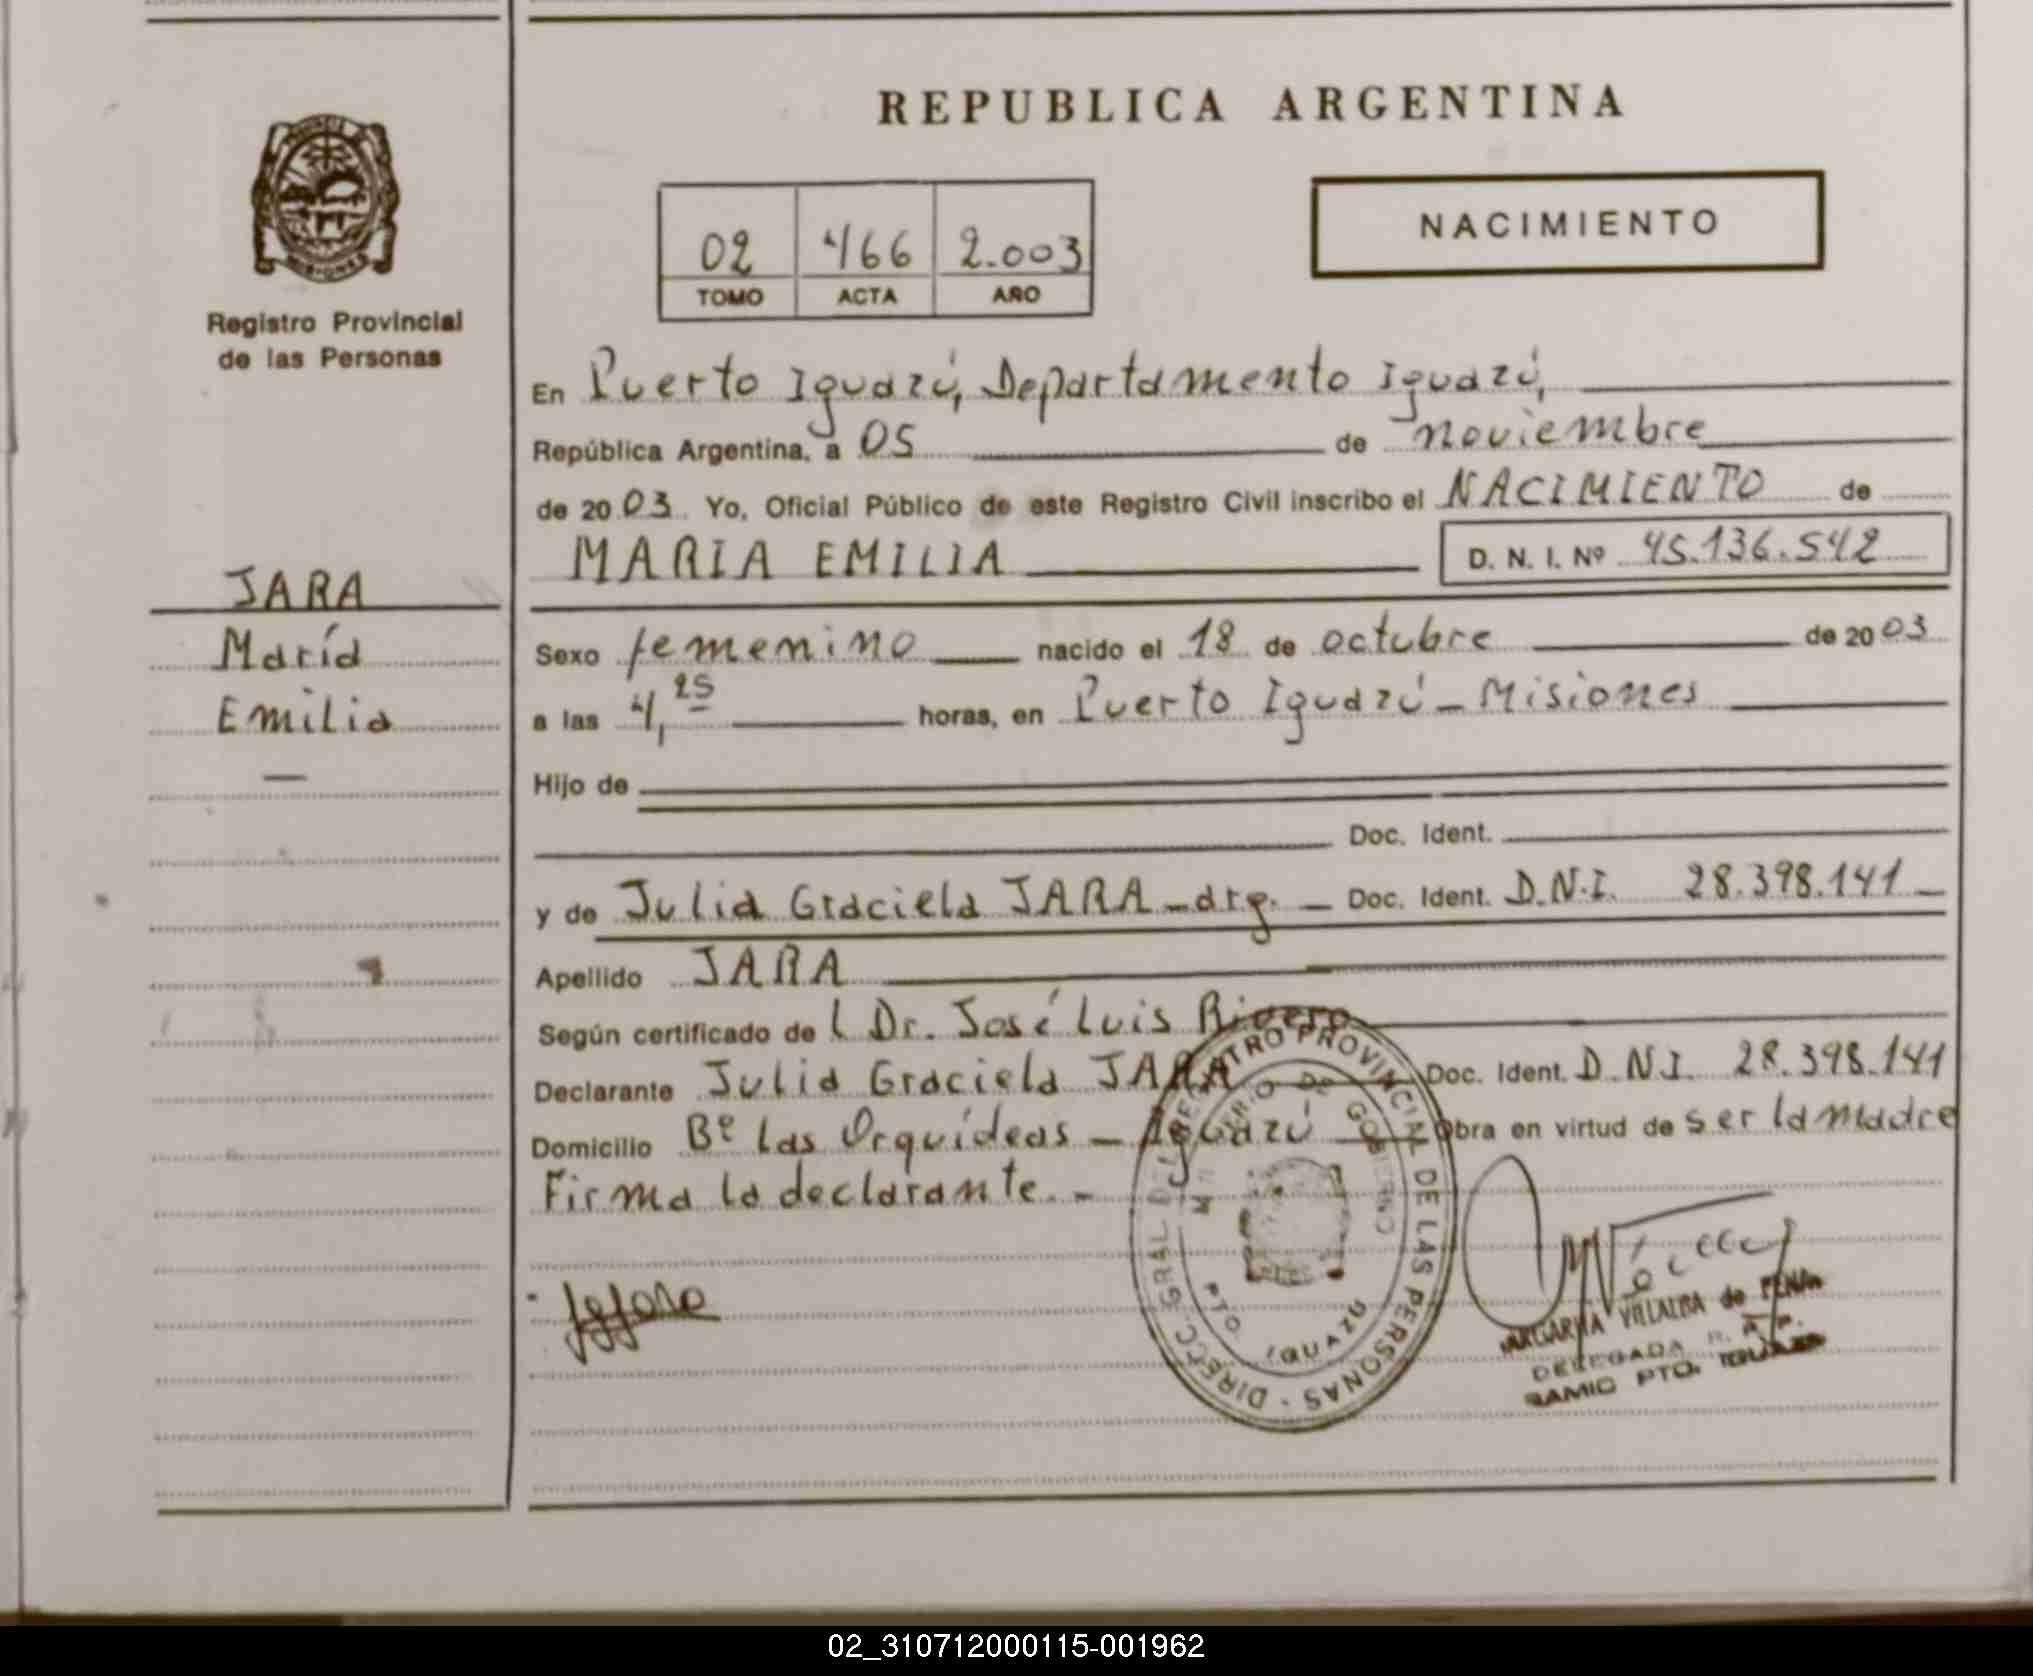 REPUBLICA ARGENTINA
NACIMIENTO
02 466 2.003
TOMO ACTA AÑO
Registro Provincial
de las Personas
En Puerto Iguazú, Departamento Iguazú,
República Argentina, a 05 de noviembre
de 2003. Yo, Oficial Público de este Registro Civil inscribo el NACIMIENTO de
MARIA EMILIA D. N. I. Nº 45.136.542
JARA
María
Emilia
Sexo femenino nacido el 18 de octubre de 2003
a las 4,25 horas, en Puerto Iguazú - Misiones
Hijo de
Doc. Ident.
y de Julia Graciela JARA - arg. - Doc. Ident. D.N.I. 28.398.141 -
Apellido JARA
Según certificado de l Dr. José Luis Rivero
Declarante Julia Graciela JARA Doc. Ident. D.N.I. 28.398.141
Domicilio Bº Las Orquídeas - Iguazú Obra en virtud de ser la madre
Firma la declarante. -
DIRECC. GRAL DEL REGISTRO PROVINCIAL DE LAS PERSONAS -
DE GOBIERNO
PTO. IGUAZU
MARGARITA VILLALBA de PENA
DELEGADA R.
SAMIC PTO. IGUAZU
02_310712000115-001962